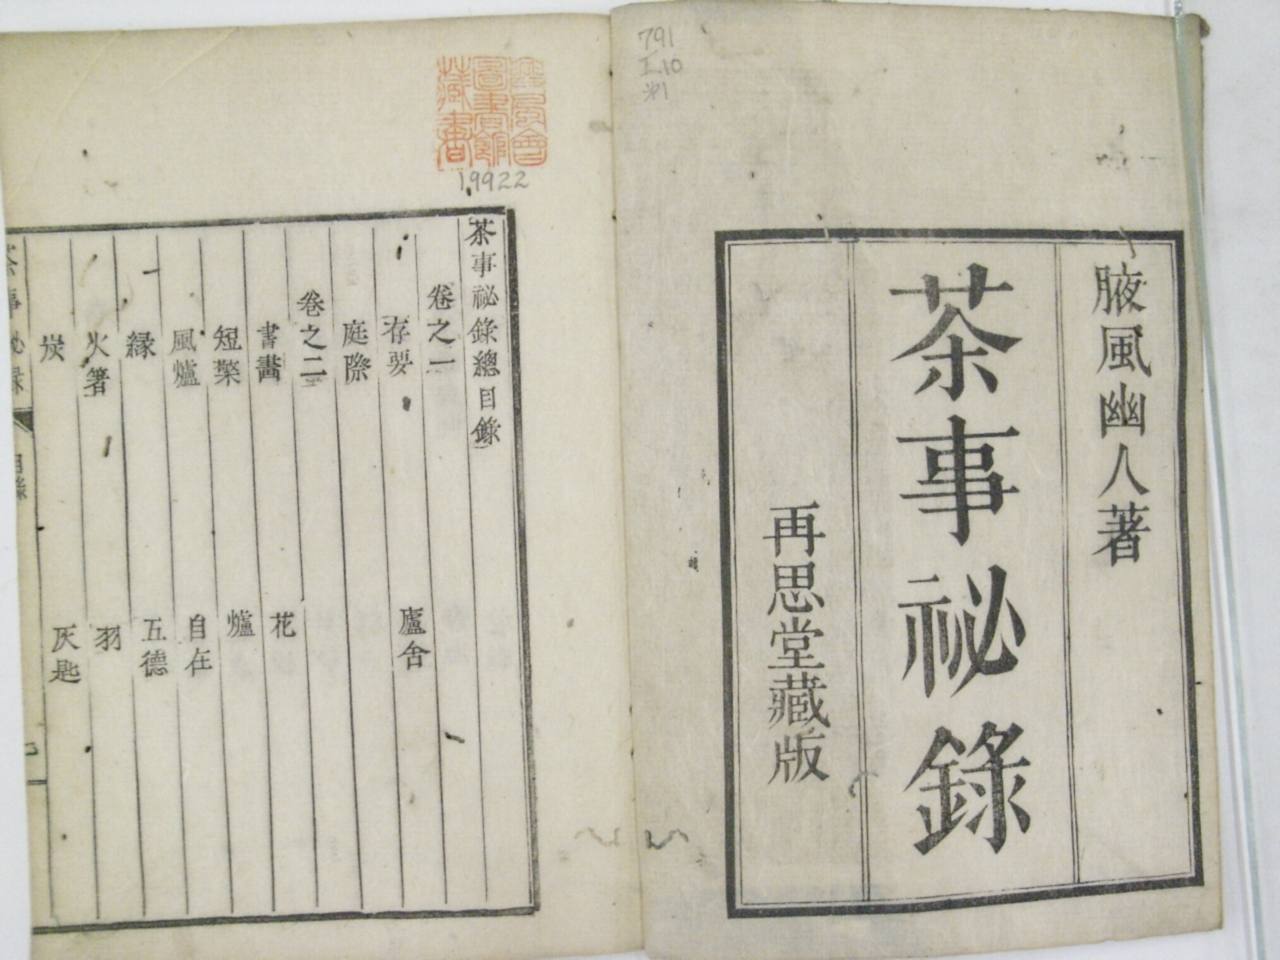 791
I.10
腋風幽人著
茶事祕錄
再思堂藏版
圖書館
藏書
19922
茶事祕錄總目錄
卷之一
存要 廬舍
庭際
卷之二
書畵 花
短檠 爐
風爐 自在
縁 五德
火箸 羽
炭 灰匙